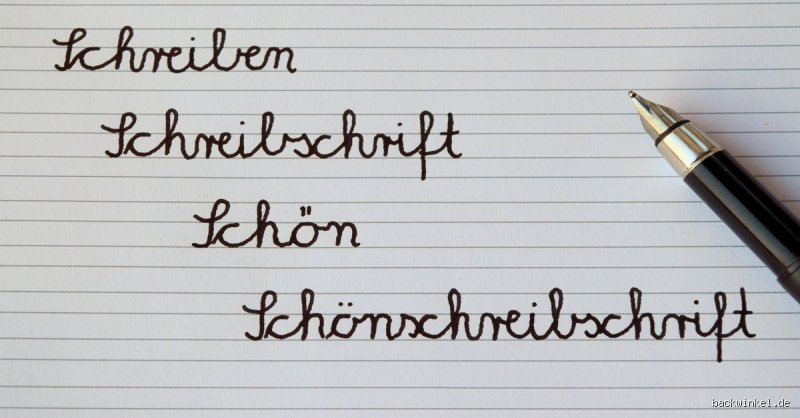 Schreiben
Schreibschrift
Schön
Schönschreibschrift
backwinkel.de